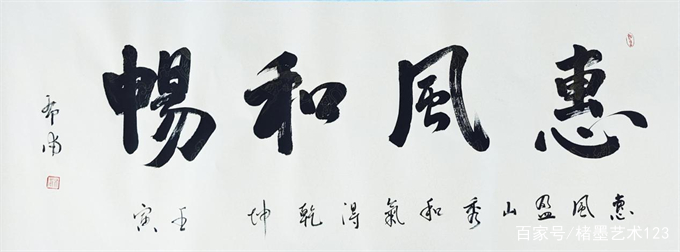 惠風和暢
惠風盈山秀和氣得乾坤 壬寅
百家号/楮墨艺术123